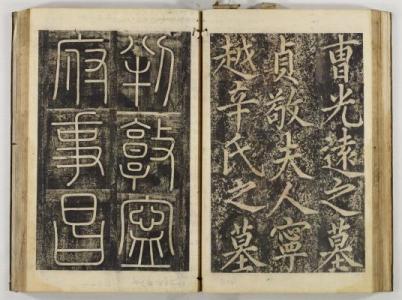 曺光遠之墓
貞敬夫人寧
越辛氏之墓
判敦寧
府事昌